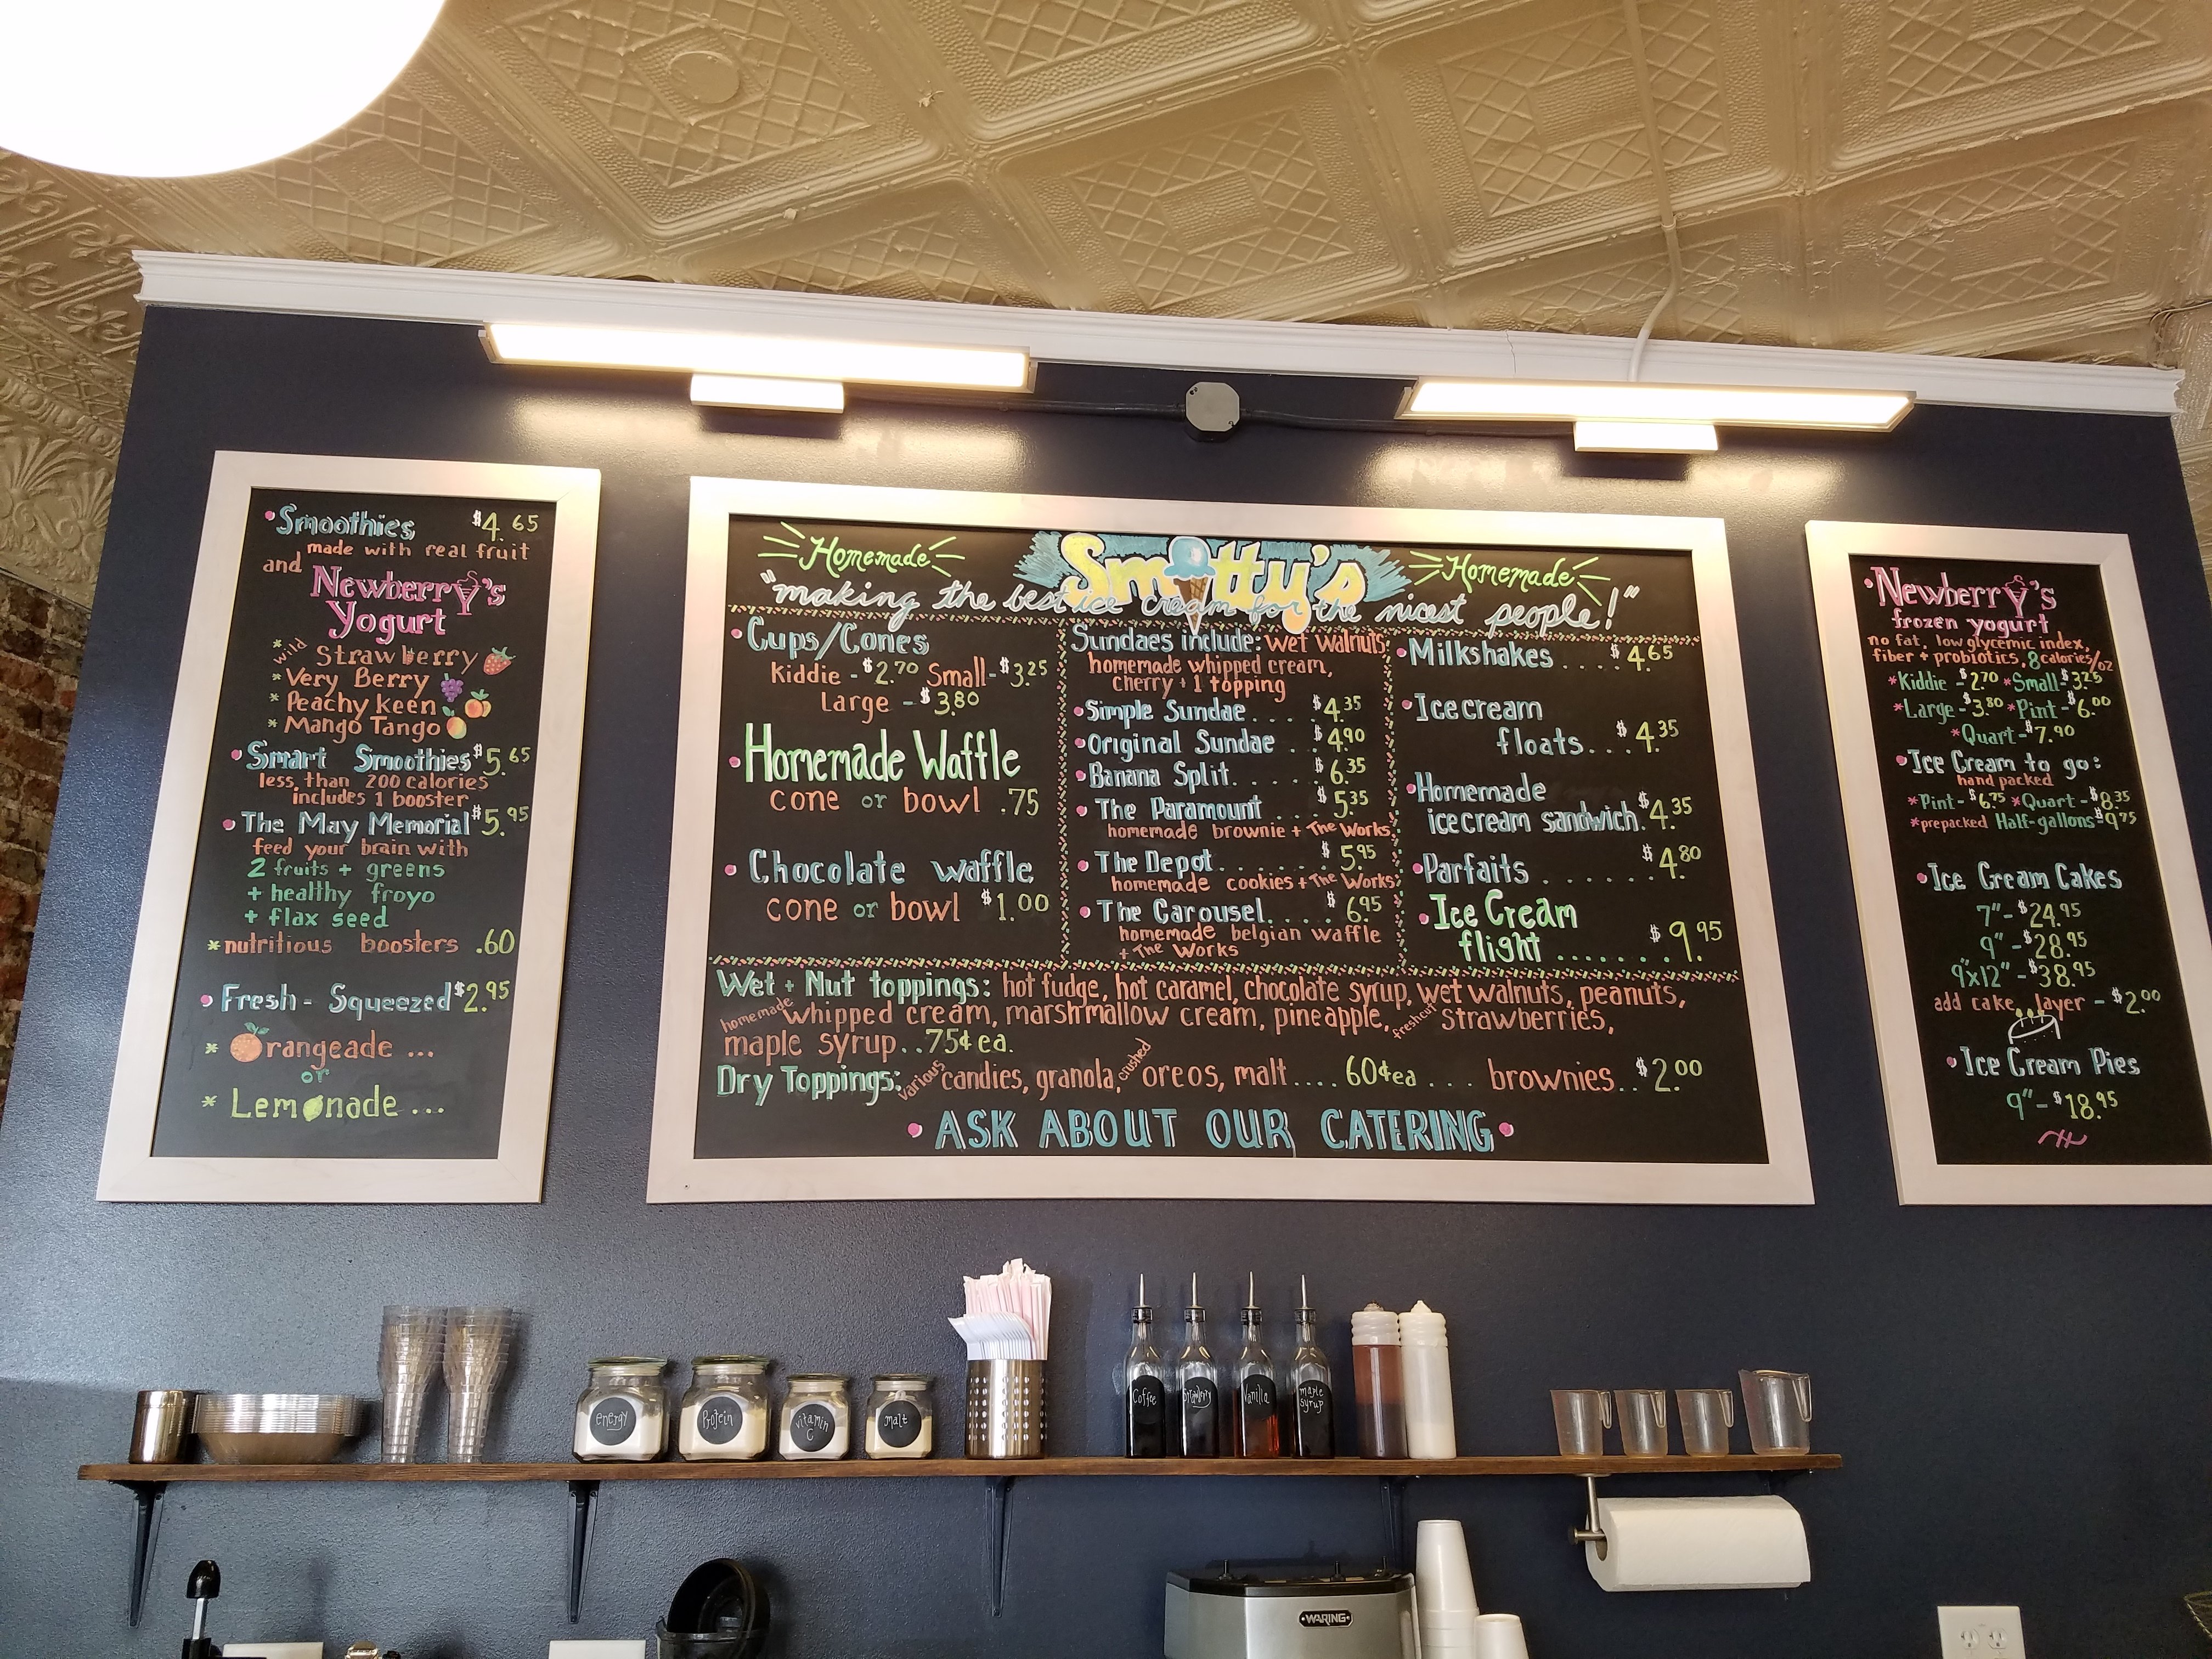 Smoothies $4.65
made with real fruit
and
Newberry's
Yogurt
* wild Strawberry
* Very Berry
* Peachy keen
* Mango Tango
Smart Smoothies $5.65
less than 200 calories
includes 1 booster
The May Memorial $5.95
feed your brain with
2 fruits + greens
+ healthy froyo
+ flax seed
* nutritious boosters .60
Fresh-Squeezed $2.95
* Orangeade ...
or
* Lemonade ...
Homemade Smotty's Homemade
"making the best ice cream for the nicest people!"
Cups/Cones
Kiddie - $2.70 Small - $3.25
Large - $3.80
Homemade Waffle
cone or bowl .75
Chocolate waffle
cone or bowl $1.00
Sundaes include: wet walnuts
homemade whipped cream,
cherry + 1 topping
Simple Sundae.... $4.35
Original Sundae .. $4.90
Banana Split..... $6.35
The Paramount.... $5.35
homemade brownie + The Works
The Depot....... $5.95
homemade cookies + The Works
The Carousel.... $6.95
homemade belgian waffle
+ The Works
Milkshakes .... $4.65
Ice cream
floats... $4.35
Homemade
ice cream sandwich. $4.35
Parfaits ...... $4.80
Ice Cream
flight ....... $9.95
Wet + Nut toppings: hot fudge, hot caramel, chocolate syrup, wet walnuts, peanuts,
homemade whipped cream, marshmallow cream, pineapple, fresh cut strawberries,
maple syrup..75¢ ea.
Dry Toppings: various candies, granola, crushed oreos, malt.... 60¢ ea... brownies..$2.00
ASK ABOUT OUR CATERING
Newberry's
frozen yogurt
no fat, low glycemic index,
fiber + probiotics, 8 calories/oz
*Kiddie - $2.70 *Small - $3.25
*Large - $3.80 *Pint - $6.00
*Quart - $7.90
Ice Cream to go:
hand packed
*Pint - $6.75 *Quart - $8.35
*prepacked Half-gallons $9.75
Ice Cream Cakes
7" - $24.95
9" - $28.95
9"x12" - $38.95
add cake layer - $2.00
Ice Cream Pies
9" - $18.95
energy
Protein
vitamin
C
malt
Coffee
Strawberry
Vanilla
maple
syrup
WARING